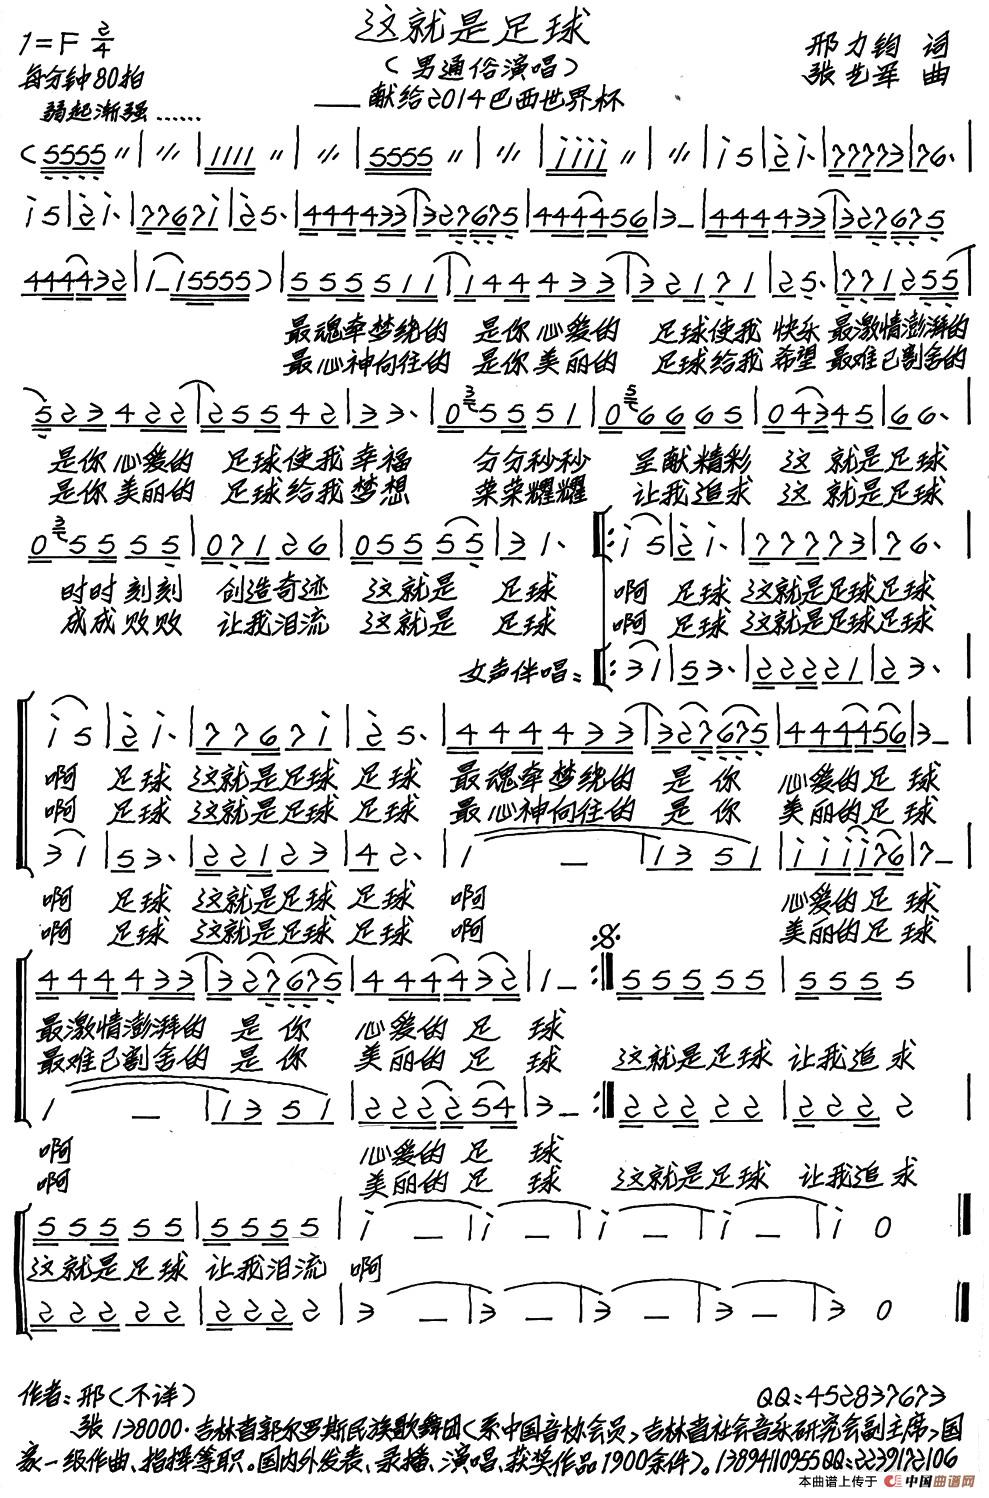 这就是足球
1=F 2/4
(男通俗演唱)
邢力钧 词
每分钟80拍
——献给2014巴西世界杯
张艺军 曲
弱起渐强……
最魂牵梦绕的 是你心爱的 足球使我 快乐 最激情澎湃的
最心神向往的 是你美丽的 足球给我 希望 最难已割舍的
是你心爱的 足球使我幸福 分分秒秒 呈献精彩 这就是足球
是你美丽的 足球给我梦想 荣荣耀耀 让我追求 这就是足球
时时刻刻 创造奇迹 这就是 足球 啊 足球 这就是足球足球
成成败败 让我泪流 这就是 足球 啊 足球 这就是足球足球
女声伴唱:
啊 足球 这就是足球 足球 最魂牵梦绕的 是你 心爱的足球
啊 足球 这就是足球 足球 最心神向往的 是你 美丽的足球
啊 足球 这就是足球 足球 啊 心爱的足球
啊 足球 这就是足球 足球 啊 美丽的足球
最激情澎湃的 是你 心爱的足球
最难已割舍的 是你 美丽的足球 这就是足球 让我追求
啊 心爱的足球
啊 美丽的足球 这就是足球 让我追求
这就是足球 让我泪流 啊
作者:邢(不详) QQ:452837673
张 138000·吉林省郭尔罗斯民族歌舞团(系中国音协会员,吉林省社会音乐研究会副主席,国
家一级作曲、指挥等职。国内外发表、录播、演唱、获奖作品1900余件)。13894110955QQ:2239172106
本曲谱上传于 中国曲谱网